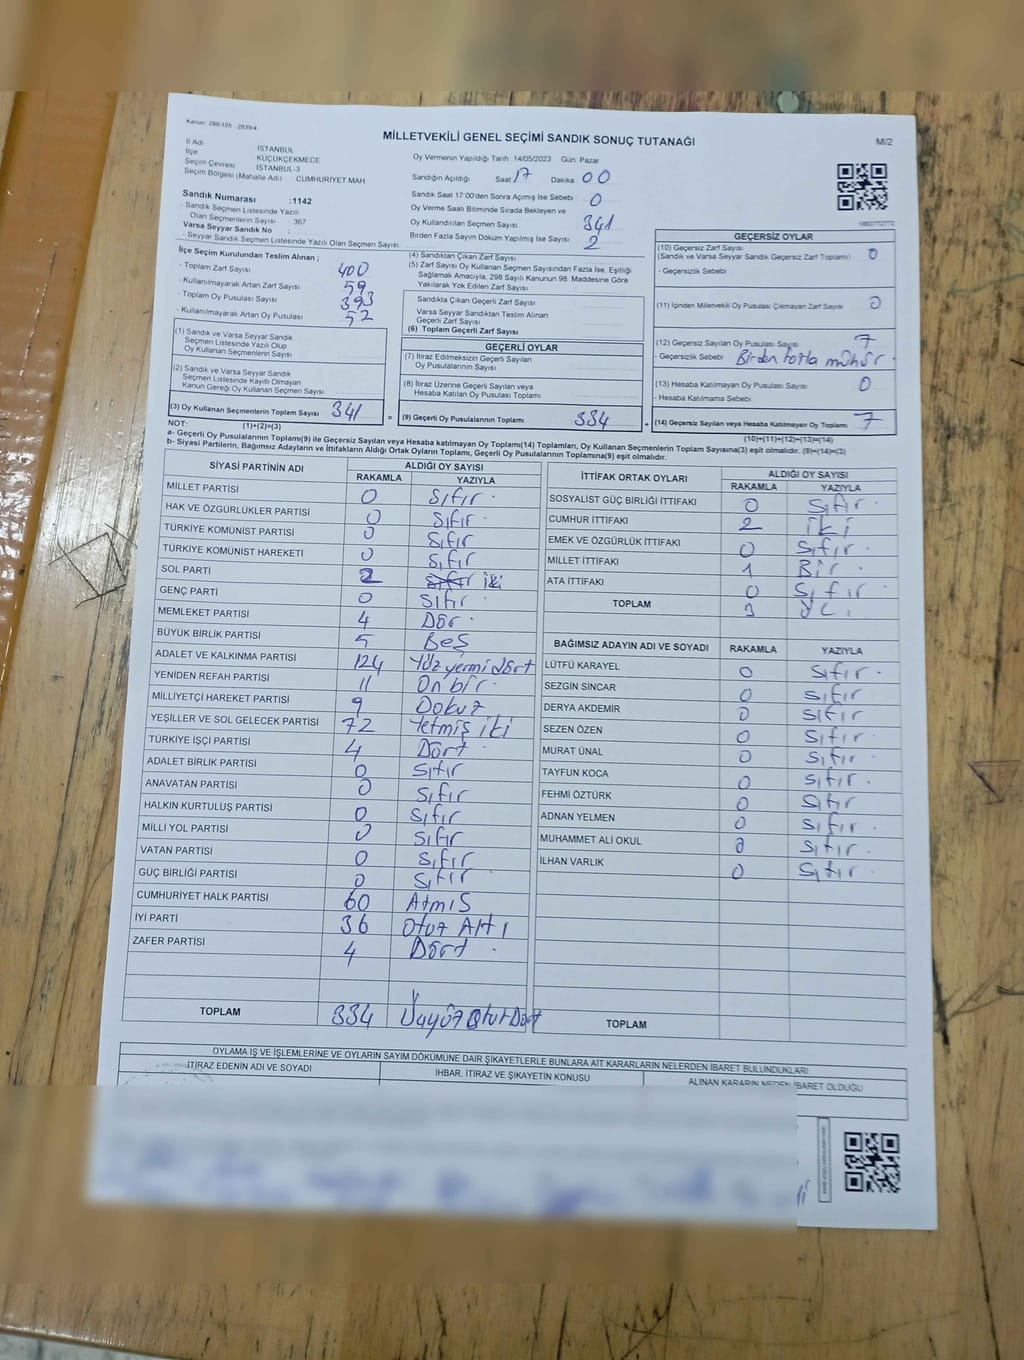 Kanun: 298/105 2839/4
MİLLETVEKİLİ GENEL SEÇİMİ SANDIK SONUÇ TUTANAĞI
M/2
İl Adı İSTANBUL
İlçe KÜÇÜKÇEKMECE
Seçim Çevresi İSTANBUL-3
Seçim Bölgesi (Mahalle Adı) CUMHURİYET MAH
Sandık Numarası :1142
- Sandık Seçmen Listesinde Yazılı
Olan Seçmenlerin Sayısı 367
Varsa Seyyar Sandık No :
- Seyyar Sandık Seçmen Listesinde Yazılı Olan Seçmen Sayısı.
Oy Vermenin Yapıldığı Tarih 14/05/2023 Gün Pazar
Sandığın Açıldığı Saat 17 Dakika 00
Sandık Saat 17.00'den Sonra Açılmış İse Sebebi 0
Oy Verme Saati Bitiminde Sırada Bekleyen ve
Oy Kullandırılan Seçmen Sayısı 341
Birden Fazla Sayım Döküm Yapılmış İse Sayısı 2
İlçe Seçim Kurulundan Teslim Alınan ;
- Toplam Zarf Sayısı 400
- Kullanılmayarak Artan Zarf Sayısı 59
- Toplam Oy Pusulası Sayısı 393
- Kullanılmayarak Artan Oy Pusulası 52
(1) Sandık ve Varsa Seyyar Sandık
Seçmen Listesinde Yazılı Olup
Oy Kullanan Seçmenlerin Sayısı
(2) Sandık ve Varsa Seyyar Sandık
Seçmen Listesinde Kayıtlı Olmayan
Kanun Gereği Oy Kullanan Seçmen Sayısı
(3) Oy Kullanan Seçmenlerin Toplam Sayısı 341 =
(4) Sandıktan Çıkan Zarf Sayısı
(5) Zarf Sayısı Oy Kullanan Seçmen Sayısından Fazla İse, Eşitliği
Sağlamak Amacıyla, 298 Sayılı Kanunun 98. Maddesine Göre
Yakılarak Yok Edilen Zarf Sayısı
Sandıkta Çıkan Geçerli Zarf Sayısı
Varsa Seyyar Sandıktan Teslim Alınan
Geçerli Zarf Sayısı
(6) Toplam Geçerli Zarf Sayısı
GEÇERLİ OYLAR
(7) İtiraz Edilmeksizin Geçerli Sayılan
Oy Pusulalarının Sayısı
(8) İtiraz Üzerine Geçerli Sayılan veya
Hesaba Katılan Oy Pusulası Toplamı
(9) Geçerli Oy Pusulalarının Toplamı 334 +
GEÇERSİZ OYLAR
(10) Geçersiz Zarf Sayısı
(Sandık ve Varsa Seyyar Sandık Geçersiz Zarf Toplamı) 0
- Geçersizlik Sebebi
(11) İçinden Milletvekili Oy Pusulası Çıkmayan Zarf Sayısı 0
(12) Geçersiz Sayılan Oy Pusulası Sayısı 7
- Geçersizlik Sebebi Birden fazla mühür
(13) Hesaba Katılmayan Oy Pusulası Sayısı 0
- Hesaba Katılmama Sebebi
(14) Geçersiz Sayılan veya Hesaba Katılmayan Oy Toplamı 7
NOT: (1)+(2)=(3) (10)+(11)+(12)+(13)=(14)
a- Geçerli Oy Pusulaları Toplamı(9) ile Geçersiz Sayılan veya Hesaba katılmayan Oy Toplam(14) Toplamları, Oy Kullanan Seçmenlerin Toplam Sayısına(3) eşit olmalıdır. (9)+(14)=(3)
b- Siyasi Partilerin, Bağımsız Adayların ve İttifakların Aldığı Oyların Toplamı, Geçerli Oy Pusulalarının Toplamına(9) eşit olmalıdır.
SİYASİ PARTİNİN ADI ALDIĞI OY SAYISI
RAKAMLA YAZIYLA
MİLLET PARTİSİ 0 Sıfır
HAK VE ÖZGÜRLÜKLER PARTİSİ 0 Sıfır
TÜRKİYE KOMÜNİST PARTİSİ 0 Sıfır
TÜRKİYE KOMÜNİST HAREKETİ 0 Sıfır
SOL PARTİ 2 Sıfır iki
GENÇ PARTİ 0 Sıfır
MEMLEKET PARTİSİ 4 Dör
BÜYÜK BİRLİK PARTİSİ 5 Beş
ADALET VE KALKINMA PARTİSİ 124 Yüz yermi dört
YENİDEN REFAH PARTİSİ 11 On bir
MİLLİYETÇİ HAREKET PARTİSİ 9 Dokuz
YEŞİLLER VE SOL GELECEK PARTİSİ 72 Yetmiş iki
TÜRKİYE İŞÇİ PARTİSİ 4 Dört
ADALET BİRLİK PARTİSİ 0 Sıfır
ANAVATAN PARTİSİ 0 Sıfır
HALKIN KURTULUŞ PARTİSİ 0 Sıfır
MİLLİ YOL PARTİSİ 0 Sıfır
VATAN PARTİSİ 0 Sıfır
GÜÇ BİRLİĞİ PARTİSİ 0 Sıfır
CUMHURİYET HALK PARTİSİ 60 Atmıs
İYİ PARTİ 36 Otuz Altı
ZAFER PARTİSİ 4 Dört
TOPLAM 334 Üçyüz Otuz Dört
İTTİFAK ORTAK OYLARI ALDIĞI OY SAYISI
RAKAMLA YAZIYLA
SOSYALİST GÜÇ BİRLİĞİ İTTİFAKI 0 Sıfır
CUMHUR İTTİFAKI 2 İki
EMEK VE ÖZGÜRLÜK İTTİFAKI 0 Sıfır
MİLLET İTTİFAKI 1 Bir
ATA İTTİFAKI 0 Sıfır
TOPLAM 3 Üç
BAĞIMSIZ ADAYIN ADI VE SOYADI RAKAMLA YAZIYLA
LÜTFÜ KARAYEL 0 Sıfır
SEZGİN SİNCAR 0 Sıfır
DERYA AKDEMİR 0 Sıfır
SEZEN ÖZEN 0 Sıfır
MURAT ÜNAL 0 Sıfır
TAYFUN KOCA 0 Sıfır
FEHMİ ÖZTÜRK 0 Sıfır
ADNAN YELMEN 0 Sıfır
MUHAMMET ALİ OKUL 0 Sıfır
İLHAN VARLIK 0 Sıfır
TOPLAM
OYLAMA İŞ VE İŞLEMLERİNE VE OYLARIN SAYIM DÖKÜMÜNE DAİR ŞİKAYETLERLE BUNLARA AİT KARARLARIN NELERDEN İBARET BULUNDUKLARI
İTİRAZ EDENİN ADI VE SOYADI İHBAR, İTİRAZ VE ŞİKAYETİN KONUSU ALINAN KARARIN NEDEN İBARET OLDUĞU